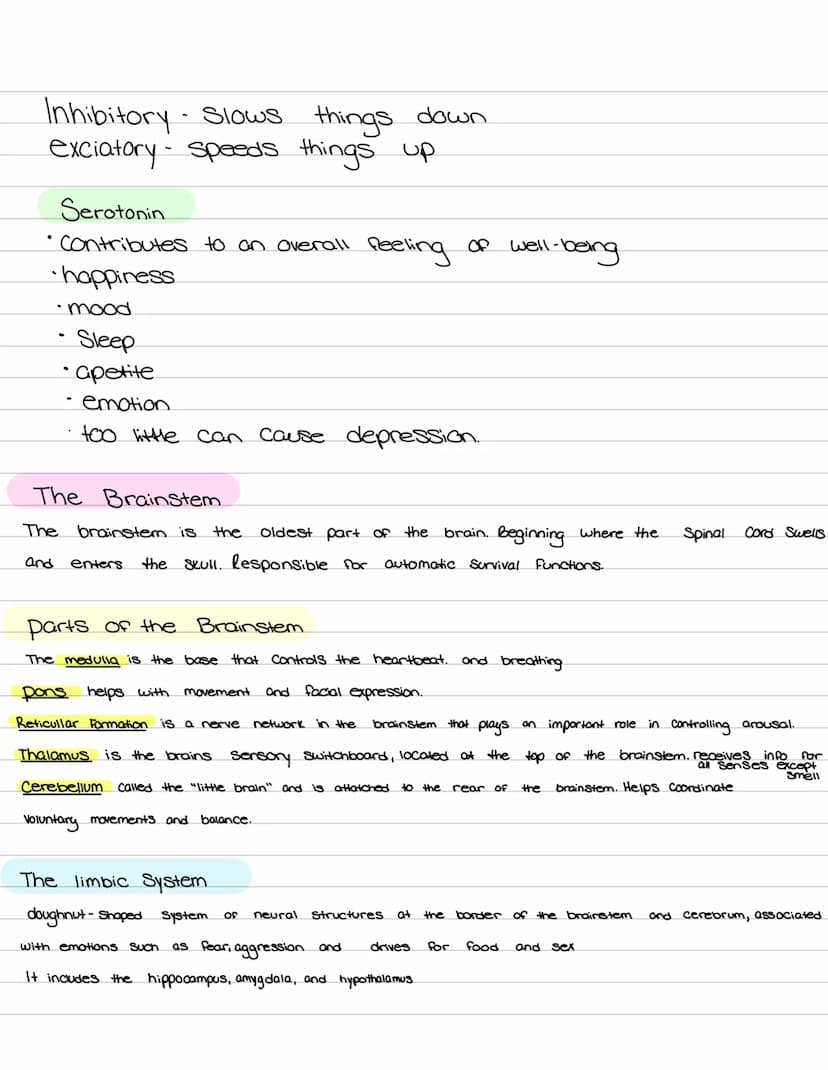 Inhibitory - Slows things down
exciatory - speeds things up
Serotonin
• contributes to an overall feeling of well-being
• happiness
• mood
• Sleep
• apetite
• emotion
• too little can cause depression.
The Brainstem
The brainstem is the oldest part of the brain. Beginning where the Spinal Cord Swells
and enters the skull. Responsible for automatic survival functions.
parts of the Brainstem
The medulla is the base that controls the heartbeat. and breathing
pons helps with movement and facial expression.
Reticullar Formation is a nerve network in the brainstem that plays an important role in controlling arousal.
Thalamus is the brains sensory switchboard, located at the top of the brainstem. receives info for
all senses except
smell
Cerebellum called the "little brain" and is attatched to the rear of the brainstem. Helps coordinate
voluntary movements and balance.
The limbic System
doughnut-shaped system of neural structures at the border of the brainstem and cerebrum, associated
with emotions such as fear, aggression and drives for food and sex
It includes the hippocampus, amygdala, and hypothalamus